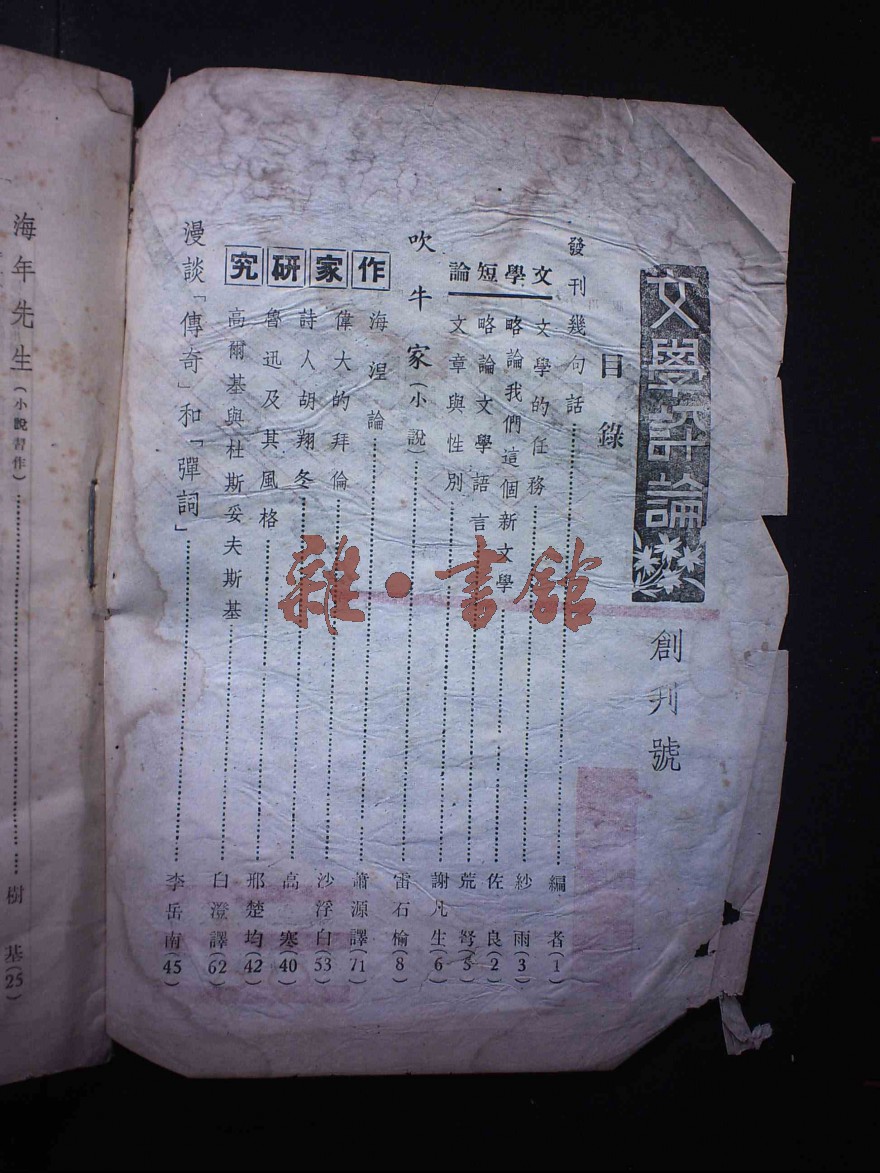 文學評論
創刊號
目錄
發刊幾句話……編者(1)
文學短論
文學的任務……紗雨(3)
略論我們這個新文學……佐良(2)
略論文學語言……荒弩(5)
文章與性別……謝凡生(6)
吹牛家(小說)……雷石榆(8)
作家研究
海涅論……蕭源譯(71)
偉大的拜倫……沙浮白(53)
詩人胡翔冬……高寒(40)
魯迅及其風格……邢楚均(42)
高爾基與杜斯妥夫斯基……白澄譯(62)
漫談「傳奇」和「彈詞」……李岳南(45)
海年先生(小說習作)……樹基(25)
雜·書館